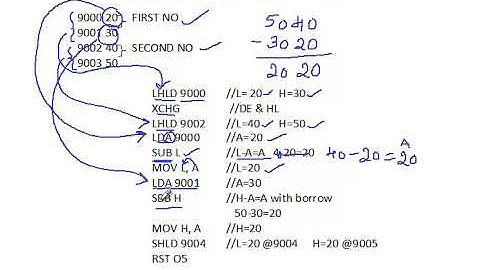 9000 20 FIRST NO
9001 30
9002 40 SECOND NO
9003 50
5040
- 3020
2020
LHLD 9000 //L= 20 H=30
XCHG //DE & HL
LHLD 9002 //L=40 H=50
LDA 9000 //A=20
SUB L //L-A=A 40-20=20 40-20=20 A
MOV L, A //L=20
LDA 9001 //A=30
SBB H //H-A=A with borrow
50-30=20
MOV H, A //H=20
SHLD 9004 //L=20 @9004 H=20 @9005
RST O5